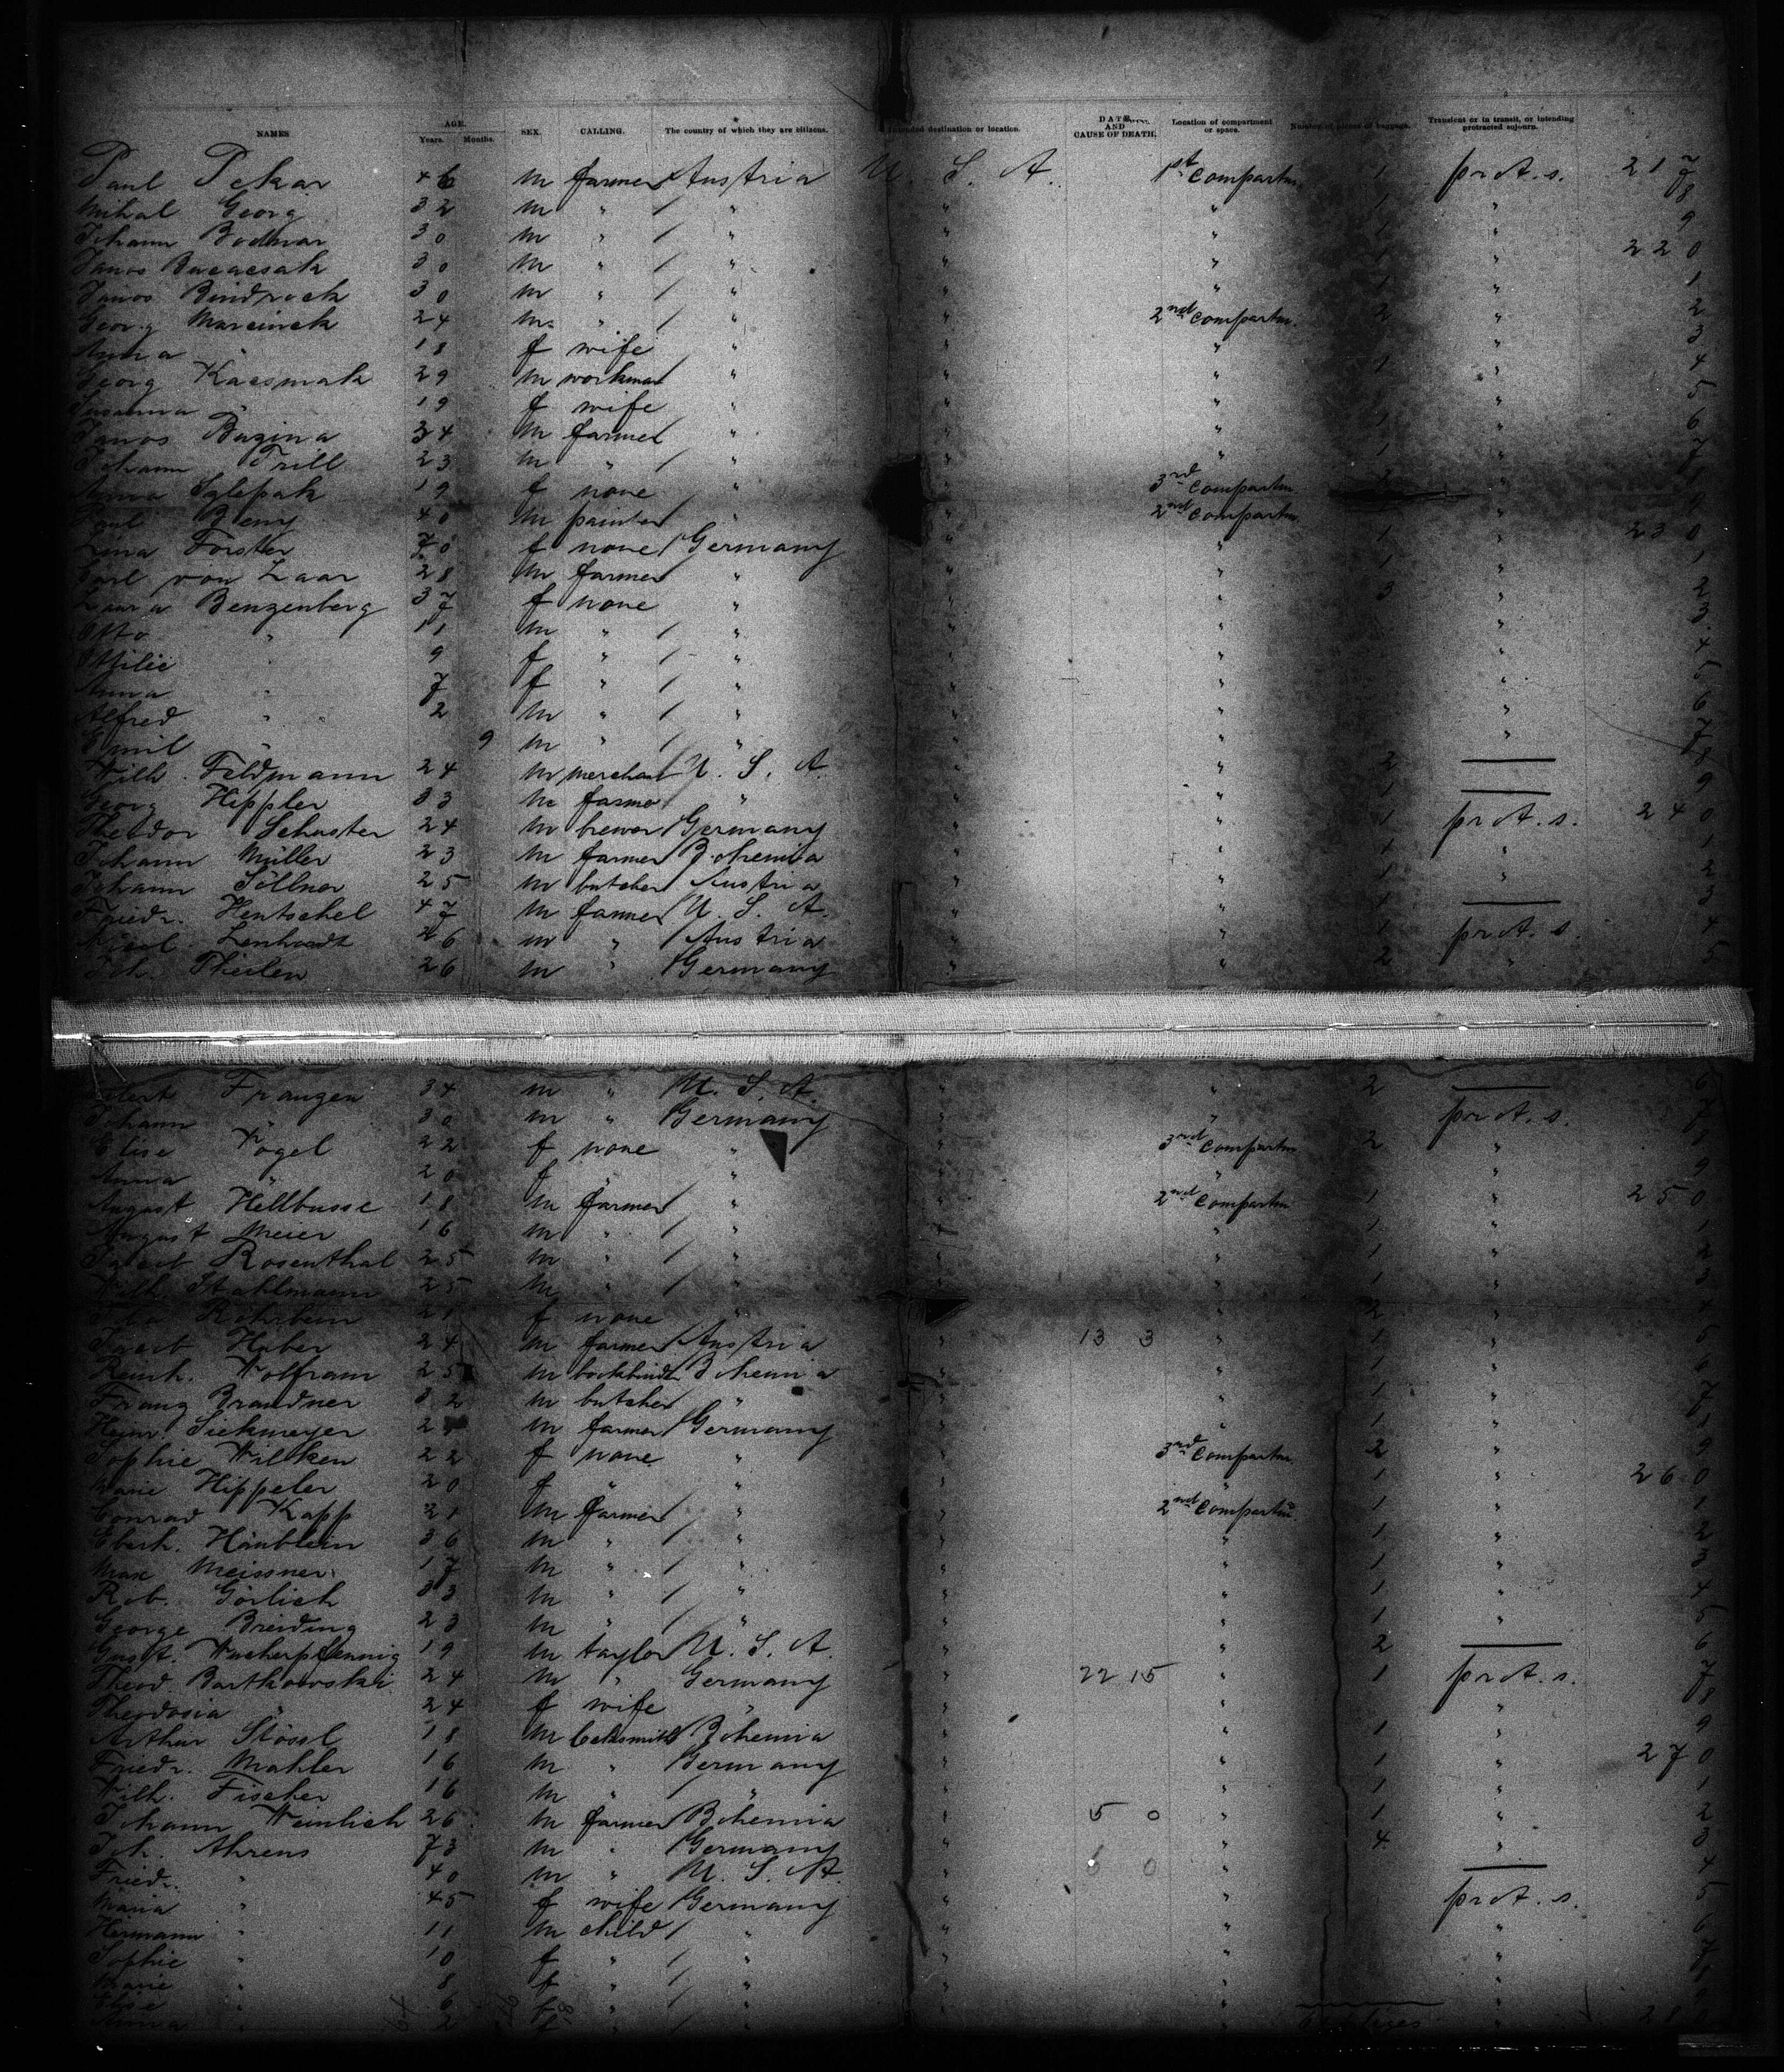 NAMES AGE. Years. Months. SEX. CALLING. The country of which they are citizens. Intended destination or location. DATE AND CAUSE OF DEATH. Location of compartment or space. Number of pieces of baggage. Transient or in transit, or intending protracted sojourn.
Paul Pekar 46 m farmer Austria U. S. A. 1st Compartm. 1 prot. s. 217
Mihal Georg 32 m " / " " " 1 " 8
Johann Bodnar 30 m " / " " " 1 " 9
Janos 30 m " / " " " 1 " 220
Janos 30 m " / " " " 1 " 1
Georg Marcinek 24 m. " / " " 2nd Compartm. 2 " 2
Anna " 18 f wife " " " " 3
Georg Kacsmak 29 m workman " " " 1 " 4
Susanna " 19 f wife " " " " 5
Janos Bazina 34 m farmer " " " 1 " 6
Johann Trill 23 m " / " " " 1 " 7
Anna 19 f none " " 3rd Compartm 2 "
Paul Beny 40 m painter " " 2nd Compartm "
Lina Forster f none / Germany " " 1 " 230
Carl von Laar 28 m farmer " " " 1 " 1
Laura Benzenberg 37 f none " " " 3 " 2
Otto " 11 m " / " " " " 3
Ottilie " 9 f " / " " " " 4
Anna " 7 f " / " " " " 5
Alfred " 2 m " / " " " " 6
Emil " 9 m " / " " " " 7
Wilh. Feldmann 24 m merchant U. S. A. " " 2 — 8
Georg Hippler 33 m farmer / " " " 1 — 9
Theodor Schuster 24 m brewer / Germany " " 1 prot. s. 240
Johann Müller 23 m farmer Bohemia " " 1 " 1
Johann Söllner 25 m butcher Austria " " 1 " 2
Friedr. Hentschel 47 m farmer U. S. A. " " 1 — 3
Nicol. Lenhardt 26 m " / Austria " " 1 prot. s. 4
Joh. Theilen 26 m " / Germany " " 2 " 5
Frangen 34 m " U. S. A. " " 2 — 6
Johann " 30 m " Germany " " prot. s. 7
Elise Vogel 22 f none " " 3rd Compartm 2 " 8
Anna " 20 f " " " " " 9
August Hellbusse 18 m farmer / " " 2nd Compartm 1 " 250
August Meier 16 m " / " " " 1 " 1
Jacob Rosenthal 25 m " / " " " 1 " 2
Wilh. Stahlmann 25 m " / " " " 1 " 3
Rohrbein 21 f none " " " 2 " 4
Jacob Huber 24 m farmer Austria " 13 3 " 1 " 5
Reinh. Wolfram 25 m bookbinder Bohemia " " 1 " 6
Franz Brandner 32 m butcher " " " 1 " 7
Heinr. Siekmeyer m farmer / Germany " " 1 "
Sophie Wilken 22 f none " " 3rd Compartm. 2 " 9
Marie Hippeler 20 f " " " " 1 " 260
Conrad Kapp 21 m farmer / " " 2nd Compartm. 1 " 1
Eberh. Häublein 36 m " / " " " 1 " 2
Max Meissner 17 m " / " " " 1 " 3
Rob. Görlich 33 m " / " " " 1 " 4
George Breiding 23 m " / " " " 1 " 5
Gust. Wacherpfennig 19 m taylor U. S. A. " " 2 — 6
Theod. Bartkowski 24 m " Germany " 22 15 " 1 prot. s. 7
Theodosia " 24 f wife " " " " 8
Arthur Stössl 18 m locksmith Bohemia " " 1 " 9
Friedr. Mahler 16 m " Germany " " 1 " 270
Wilh. Fischer 16 m " / " " " 1 " 1
Johann Weinlich 26 m farmer Bohemia " 5 0 " 1 " 2
Joh. Ahrens 73 m " / Germany " " 4 " 3
Friedr. " 40 m " U. S. A. " 6 0 " — 4
Maria " 45 f wife Germany " " prot. s. 5
Hermann " 11 m child / " " " " 6
Sophie " 10 f " / " " " " 7
Marie " 8 f " / " " " "
Elise " 6 f " / " " "
Anna " 2 f " / " "